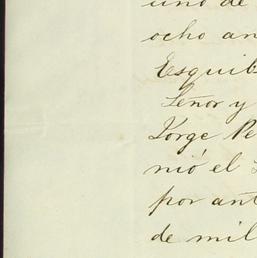 uno de
ocho an
Esquib
Señor y
Jorge Pe
nió el
por ant
de mil